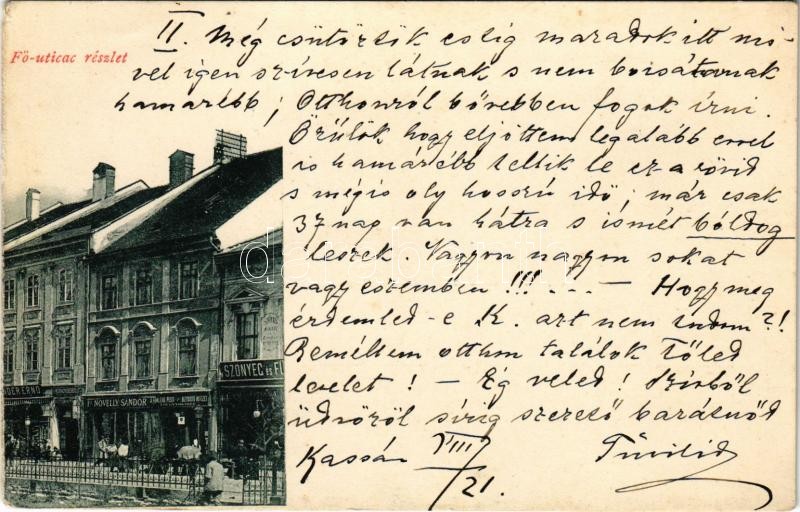 Fő-uticac részlet
II. Még csütörtök estig maradok itt mi-
vel igen szívesen látnak s nem bocsátanak
hamarébb; Otthonról bővebben fogok írni.
Örülök hogy eljöttem legalább evvel
is hamarébb tellik le ez a rövid
s mégis oly hosszú idő; már csak
37 nap van hátra s ismét bóldog
leszek. Nagyon nagyon sokat
vagy eszemben !!! . . . — Hogy meg
érdemled-e K. azt nem tudom?!
Reméltem otthon találok Tőled
levelet! — Ég veled! Szívből
üdvözöl sírig szerető barátnőd
Kassán VIII/21.
NOVELLY SÁNDOR
SZŐNYEG ÉS
DER ERNŐ